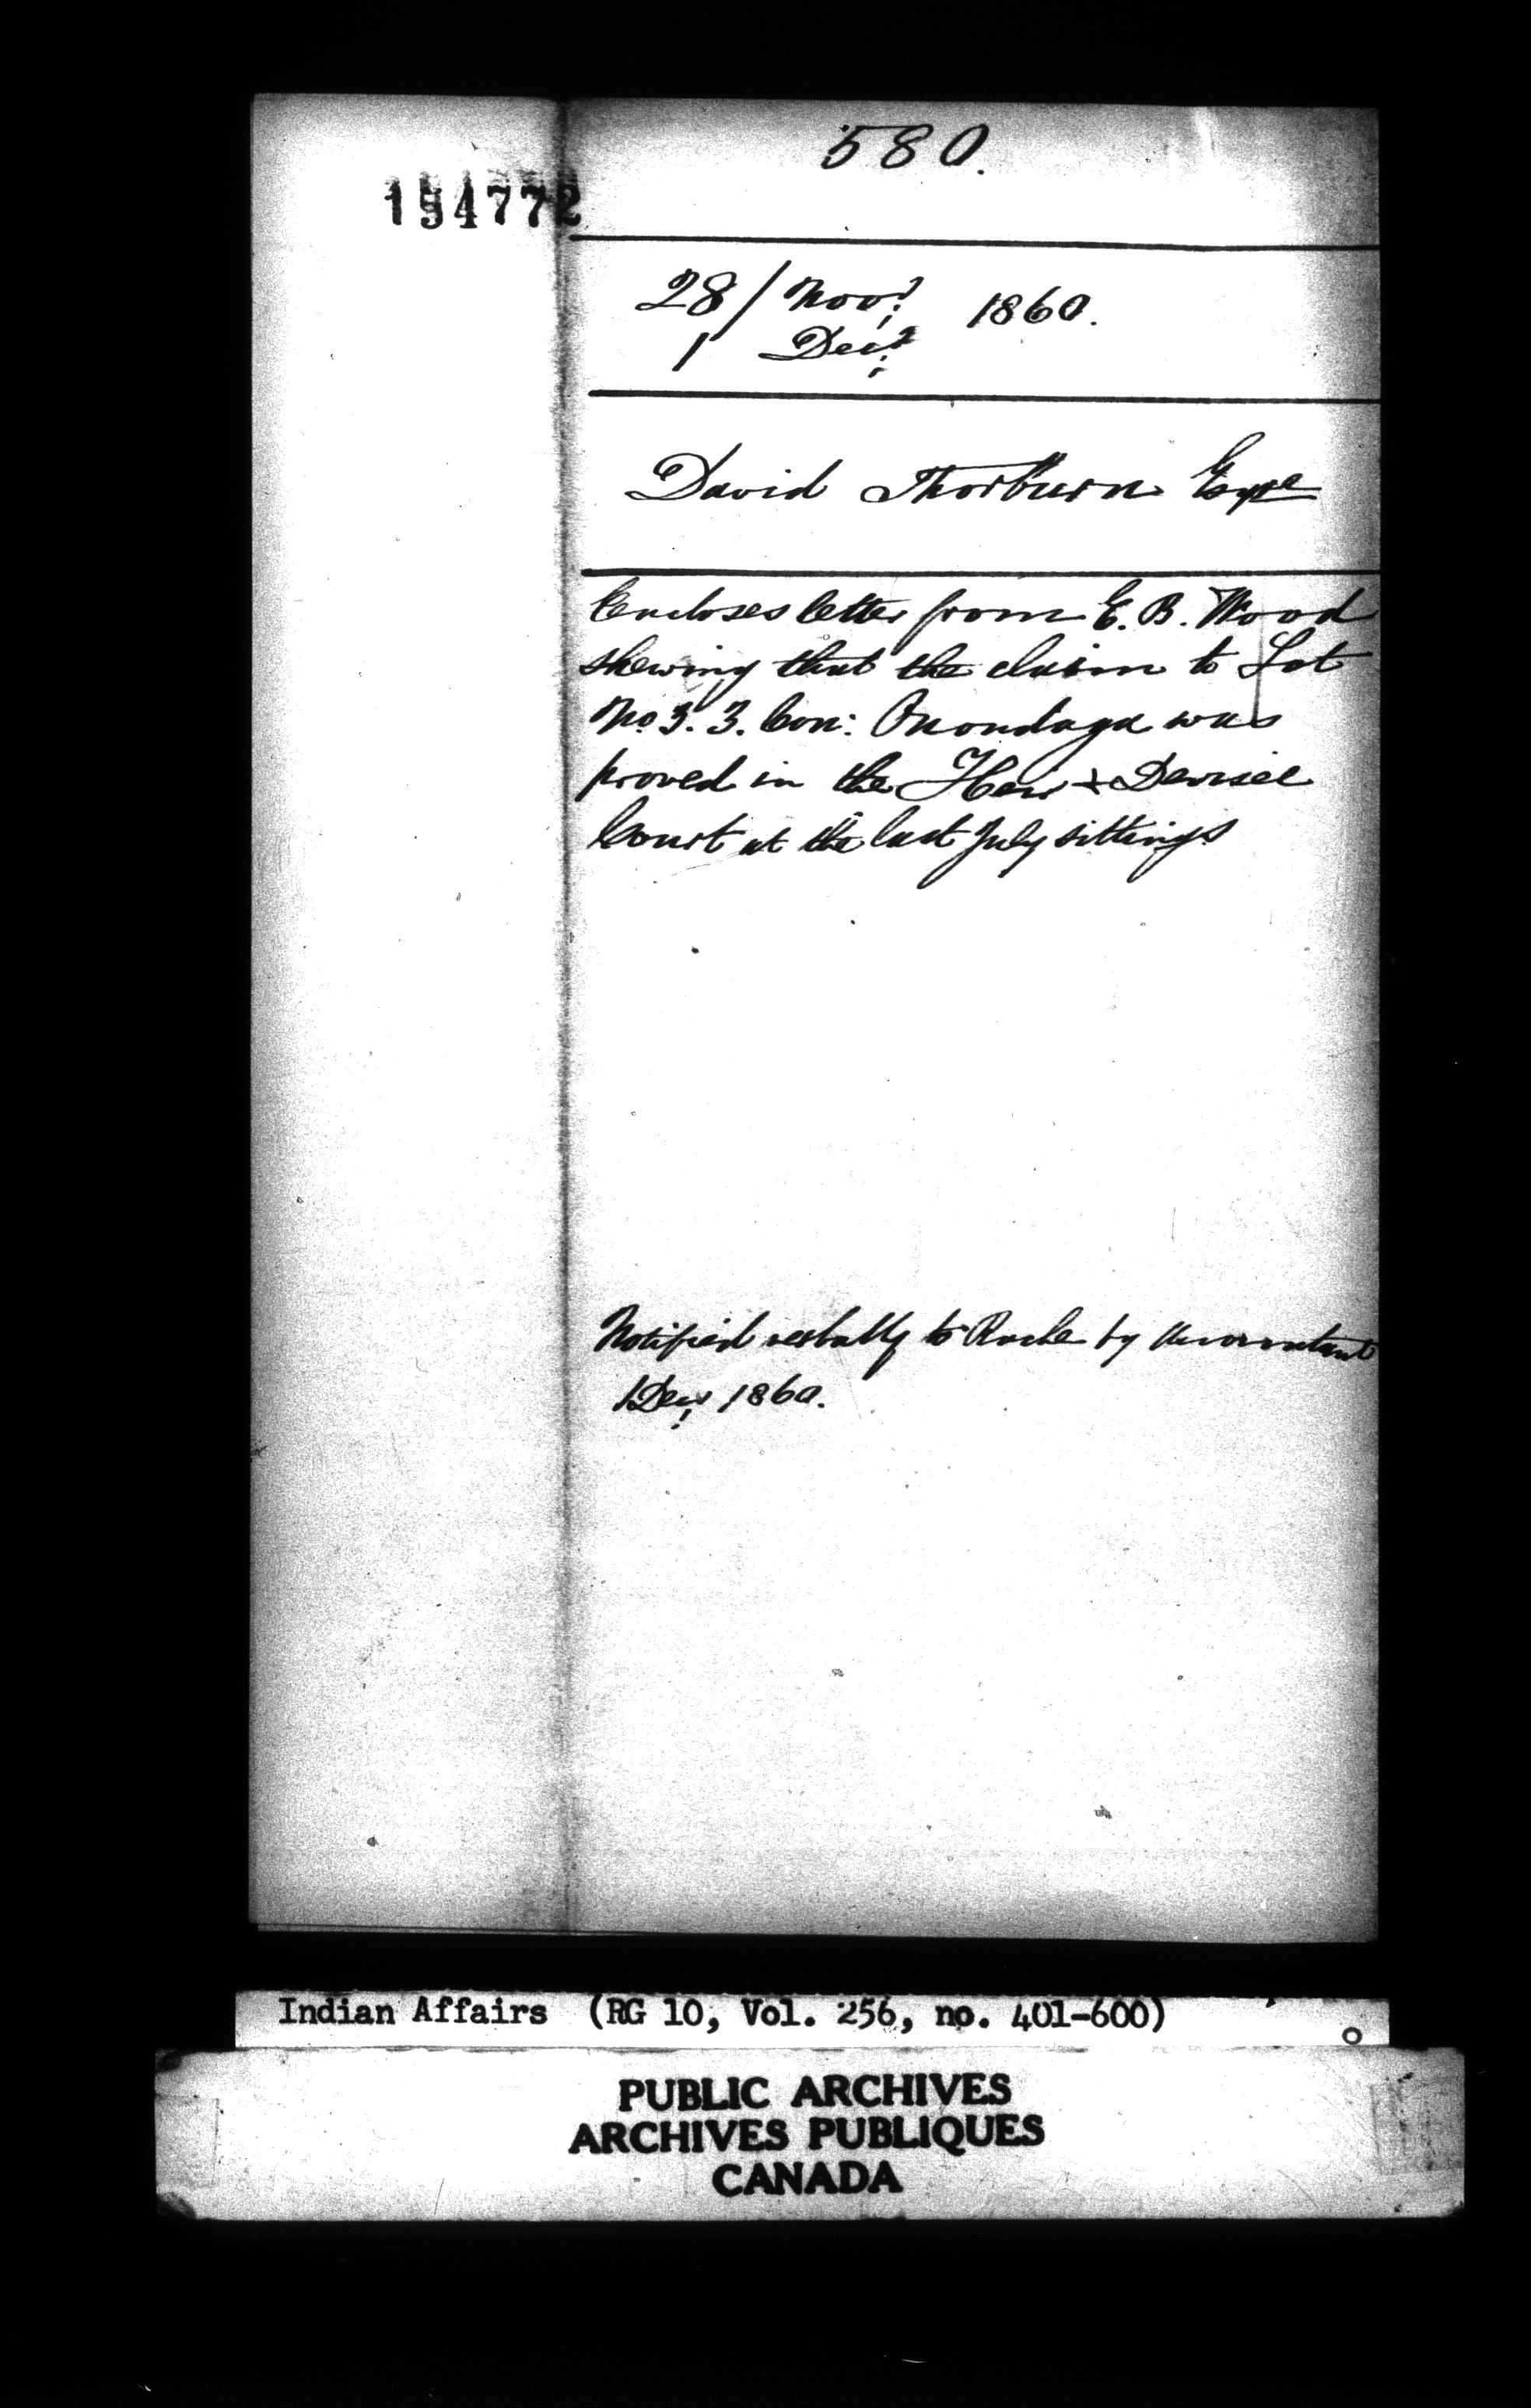 580.
154772
28/ Novr. 1860.
1 Decr.
David Thorburn Esqre
Encloses letter from E. B. Wood
shewing that the claim to Lot
No 3. 3. Con: Onondaga was
proved in the Heir & Devisee
Court at the last July sittings
Notified verbally to Roche by Accountant
1 Decr 1860.
Indian Affairs (RG 10, Vol. 256, no. 401-600)
PUBLIC ARCHIVES
ARCHIVES PUBLIQUES
CANADA